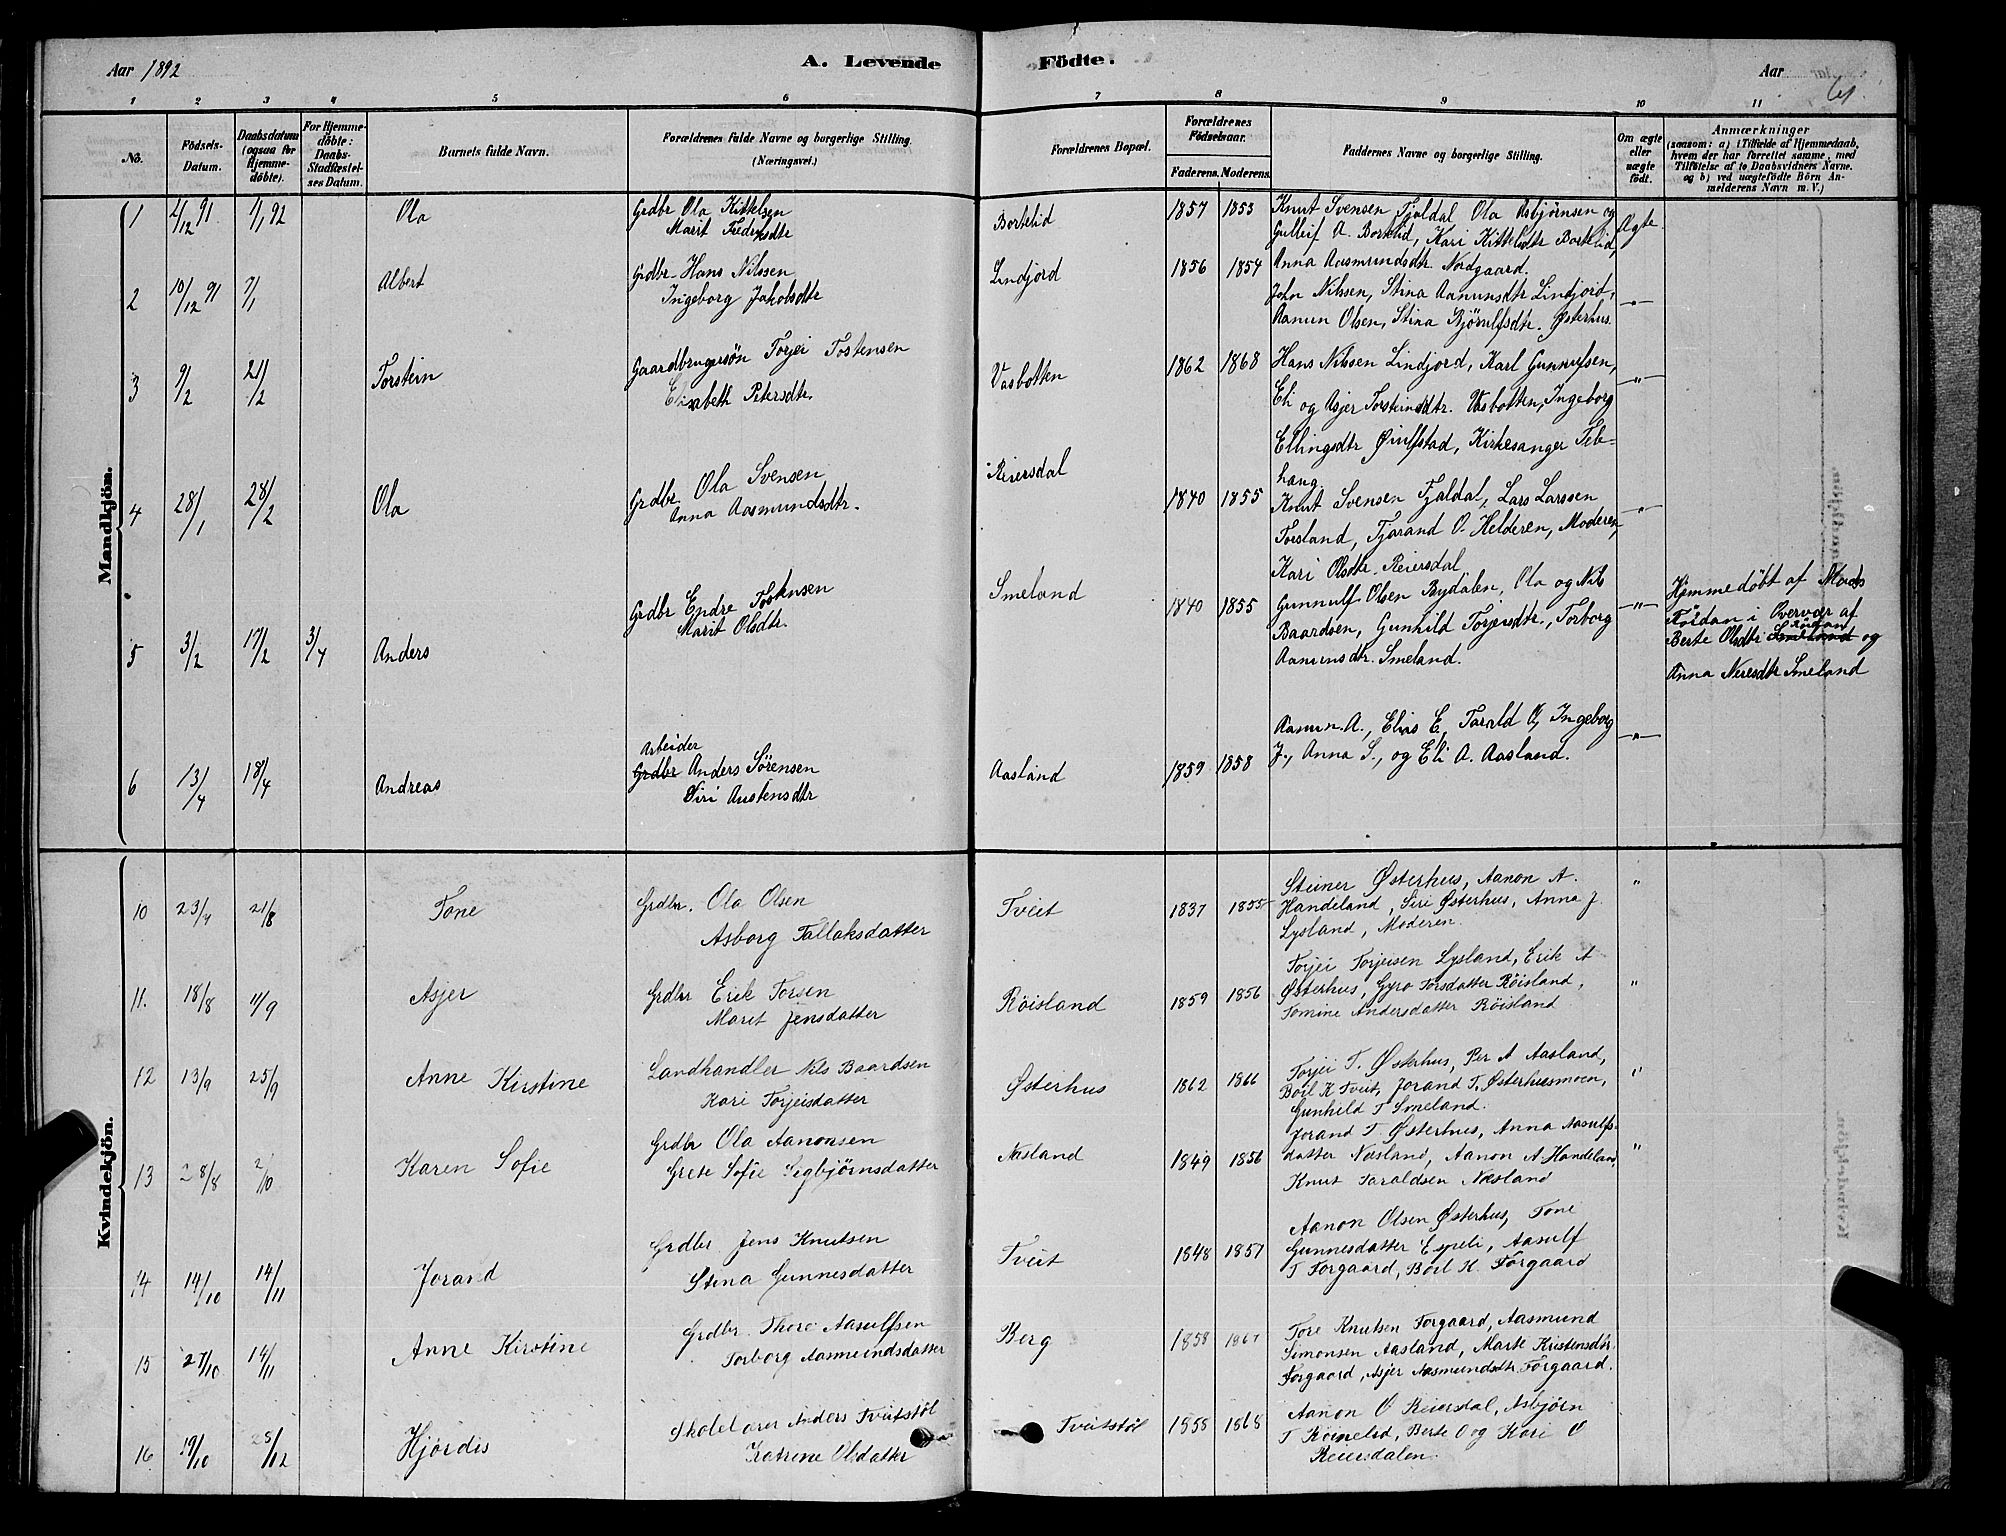 Aar 1892
A. Levende Födte.
Aar
61.
1 2 3 4 5 6 7 8 9 10 11
No.
Födsels-Datum.
Daabsdatum (ogsaa for Hjemmedöbte).
For Hjemmedöbte: Daabs-Stadfæstelses Datum.
Barnets fulde Navn.
Forældrenes fulde Navne og borgerlige Stilling.
(Næringsvei.)
Forældrenes Bopæl.
Forældrenes Födselsaar.
Faderens. Moderens.
Faddernes Navne og borgerlige Stilling.
Om ægte eller uægte födt.
Anmærkninger
(saasom: a) i Tilfælde af Hjemmedaab,
hvem der har forrettet samme, med
Tilföielse af to Daabsvidners Navne.
og b) ved uægtefödte Börn An-
melderens Navn m. V.)
Mandkjön.
1 2/12 91 1/1 92 Ola
Grdbr Ola Kittelsen
Marit
Bortelid 1857 1853
Knut Svensen Fjaldal Ola Asbjørnsen og
Gulleif A. Bortelid, Kari Kittelsdtr Bortelid,
Anna Aasmundsdtr. Nordgaard.
Ægte
2 10/12 91 7/1 Albert
Grdbr Hans Nilssen
Ingeborg Jakobsdtr
Lindjord 1856 1854
John Nilssen, Stina Aanunsdtr Lindjord,
Aanun Olsen, Stina Bjørulfsdtr. Østerhus.
—"—
3 9/2 21/2 Torstein
Gaardbrugersøn Torjei Tostensen
Elisabeth Petersdtr.
Vasbotten 1862 1868
Hans Nilssen Lindjord, Karl Gunnufsen,
Eli og Asjer Torsteinsdtr. Vasbotten, Ingeborg
Ellingsdtr Øiulfstad, Kirkesanger Tve-
haug.
—"—
4 28/1 28/2 Ola
Grdbr. Ola Svensen
Anna Aasmundsdtr.
Reiersdal 1840 1855
Knut Svensen Fjaldal, Lars Larssen
Torsland, Tjørand O. Helderen, Moderen,
Kari Olsdtr. Reiersdal
—"—
5 3/2 17/2 3/4 Anders
Grdbr Endre Tostensen
Marit Olsdtr.
Smeland 1840 1855
Gunnulf Olsen Bydalen, Ola og Nils
Baardsen, Gunhild Torjeisdtr., Torborg
Aanunsdtr. Smeland.
—"—
Hjemmedöbt af Mads
Rørdan i Overvær af
Berte Olsdtr Smeland Rørdan og
Anna Neresdtr Smeland
6 13/4 18/4 Andreas
Arbeider
Grdbr Anders Sörensen
Siri Austensdtr
Aasland 1859 1858
Aanun. A., Elias E, Tarald O, Ingeborg
J., Anna S., og Eli A. Aasland.
—"—
Kvindekjön.
10 23/4 21/8 Tone
Grdbr. Ola Olsen
Asborg Tallaksdatter
Tveit 1837 1855
Steiner Østerhus, Aanon A.
Handeland, Siri Østerhus, Anna J.
Lysland, Moderen.
"
11. 18/8 11/9 Asjer
Grdbr Erik Torsen
Marit Jensdatter
Röisland 1859 1856
Torjei Torjeisen Lysland, Erik A
Østerhus, Gyro Torsdatter Röisland,
Tomine Andersdatter Röisland
"
12 13/9 25/9 Anne Kirstine
Landhandler Nils Baardsen
Kari Torjeisdatter
Østerhus 1862 1866
Torjei T. Østerhus, Per A Aasland,
Boil K Tveit, Jorand T. Østerhusmoen,
Gunhild T Smeland.
"
13 28/8 2/10 Karen Sofie
Grdbr Ola Aanonsen
Grete Sofie Segbjørnsdatter
Næsland 1849 1856
Jorand T Østerhus, Anna Aasulfs-
datter Næsland, Aanon A Handeland,
Knut Taraldsen Næsland
"
14 14/10 14/11 Jorand
Grdbr. Jens Knutsen
Stina Gunnesdatter
Tveit 1848 1857
Aanon Olsen Østerhus, Tone
Gunnesdatter Espeli, Aasulf
T Forgaard, Boil K. Förgaard
15 27/10 14/11 Anne Kirstine
Grdbr. Thore Aasulfsen
Torborg Aasmundsdatter
Berg 1858 1867
Tore Knutsen Forgaard, Aasmund
Simonsen Aasland, Marte Kristensdtr.
Forgaard, Asjer Aasmundsdtr. Förgaard.
16 19/10 25/12 Hjördis
Skolelærer Anders Tveitstöl
Katrine Olsdatter
Tveitstöl 1858 1868
Aanon O Reiersdal, Asbjörn
T Röinelid, Berte O og Kari O
Reiersdalen.